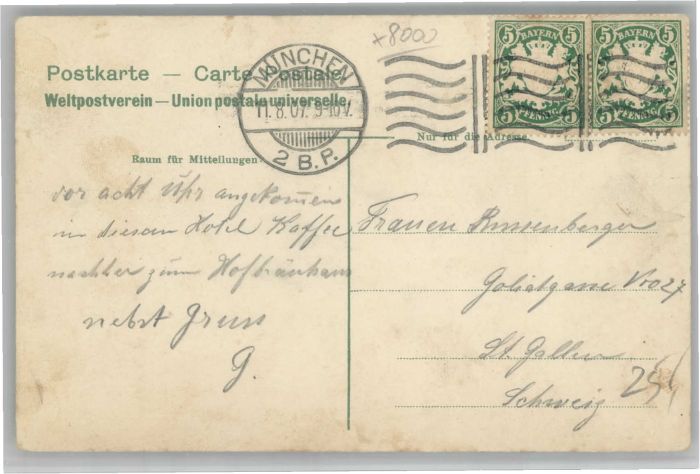 x8000
5 BAYERN 5
5 PFENNIG 5
5 BAYERN 5
5 PFENNIG 5
Postkarte — Carte postale
Weltpostverein — Union postale universelle
MÜNCHEN
11.8.07. 9-10V.
2 B.P.
Nur für die Adresse.
Raum für Mitteilungen
vor acht Uhr angekommen
in diesem Hotel Kaffee
nachher zum Hofbräuhaus
nebst Gruss
G.
Frauen
Goliatgasse No 27
St. Gallen
Schweiz